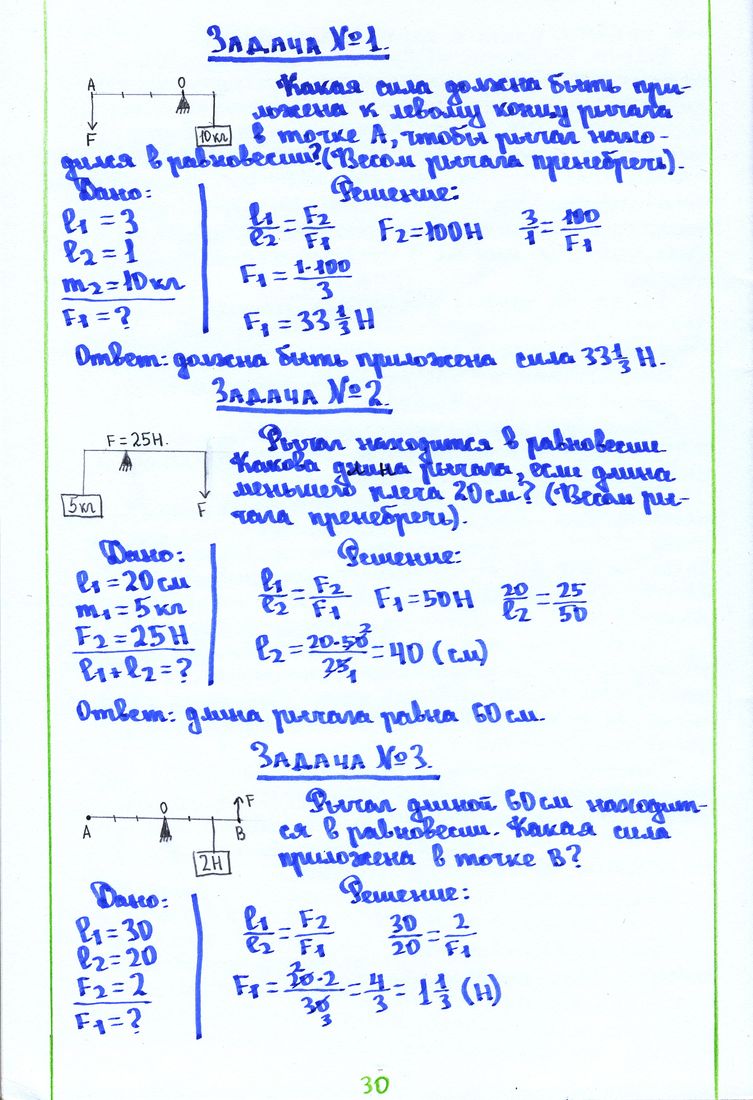 Задача №1.
A O
F 10кг
Какая сила должна быть при-
ложена к левому концу рычага
в точке А, чтобы рычаг нахо-
дился в равновесии? (Весом рычага пренебречь).
Дано: Решение:
l1 = 3
l2 = 1
m2 = 10кг
F1 = ?
l1/l2 = F2/F1 F2 = 100Н 3/1 = 100/F1
F1 = 1·100/3
F1 = 33 1/3 Н
Ответ: должна быть приложена сила 33 1/3 Н.
Задача №2.
F = 25Н.
5кг F
Рычаг находится в равновесии.
Какова длина рычага, если длина
меньшего плеча 20см? (Весом ры-
чага пренебречь).
Дано: Решение:
l1 = 20см
m1 = 5кг
F2 = 25Н
l1 + l2 = ?
l1/l2 = F2/F1 F1 = 50Н 20/l2 = 25/50
l2 = 20·50 2/25 1 = 40 (см)
Ответ: длина рычага равна 60см.
Задача №3.
A O F B
2Н
Рычаг длиной 60см находит-
ся в равновесии. Какая сила
приложена в точке В?
Дано: Решение:
l1 = 30
l2 = 20
F2 = 2
F1 = ?
l1/l2 = F2/F1 30/20 = 2/F1
F1 = 2 20·2/30 3 = 4/3 = 1 1/3 (Н)
30